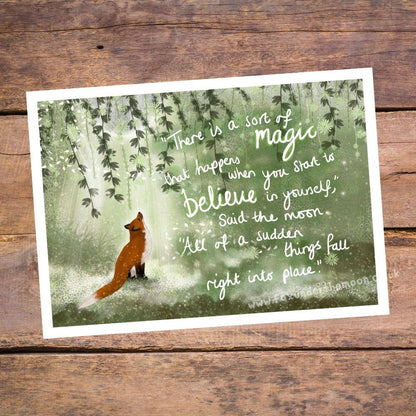 "There is a sort of
magic
that happens
when you start to
believe in yourself,"
Said the moon.
"All of a sudden
things fall
right into place."